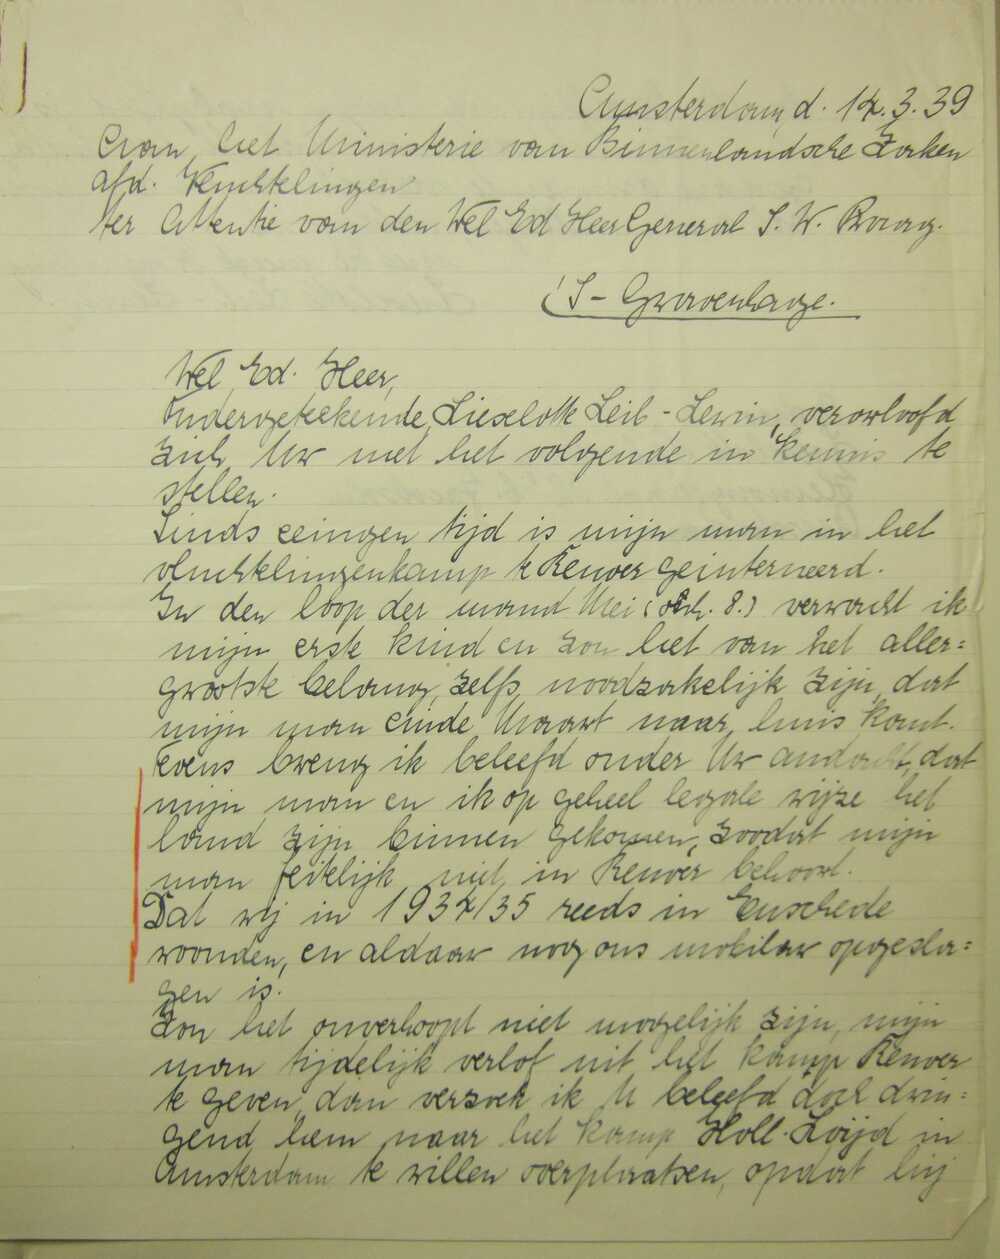 Amsterdam, d. 14.3.39
Aan het Ministerie van Binnenlandsche Zaken
afd. Vluchtelingen
ter Attentie van den Wel Ed Heer General S. W. Praag.
'S-Gravenhage.
Wel Ed. Heer,
Ondergeteekende, Lieselotte Leib-Lewin, verowloofd
zich Uw met het volgende in kennis te
stellen.
Sinds eeingen tijd is mijn man in het
vluchtelingenkamp te Reuver geinterneerd.
In den loop der maand Mei (och. 8.) verwacht ik
mijn erste kind en zou het van het aller=
grootste belang, zelfs noodzakelijk zijn, dat
mijn man einde Maart naar huis komt.
Tevens breng ik beleefd onder Uw andacht, dat
mijn man en ik op geheel legale wijze het
land zijn binnen gekomen, zoodat mijn
man feitelijk niet in Reuver behoort.
Dat wij in 1934/35 reeds in Enschede
woonden, en aldaar nog ons mobilar opgesla=
gen is.
Zou het onverhoopt niet mogelijk zijn, mijn
man tijdelijk verlof uit het kamp Reuver
te geven, dan verzoek ik U beleefd doch drin=
gend hem naar het kamp Holl. Loijd in
Amsterdam te willen overplaatsen, opdat hij